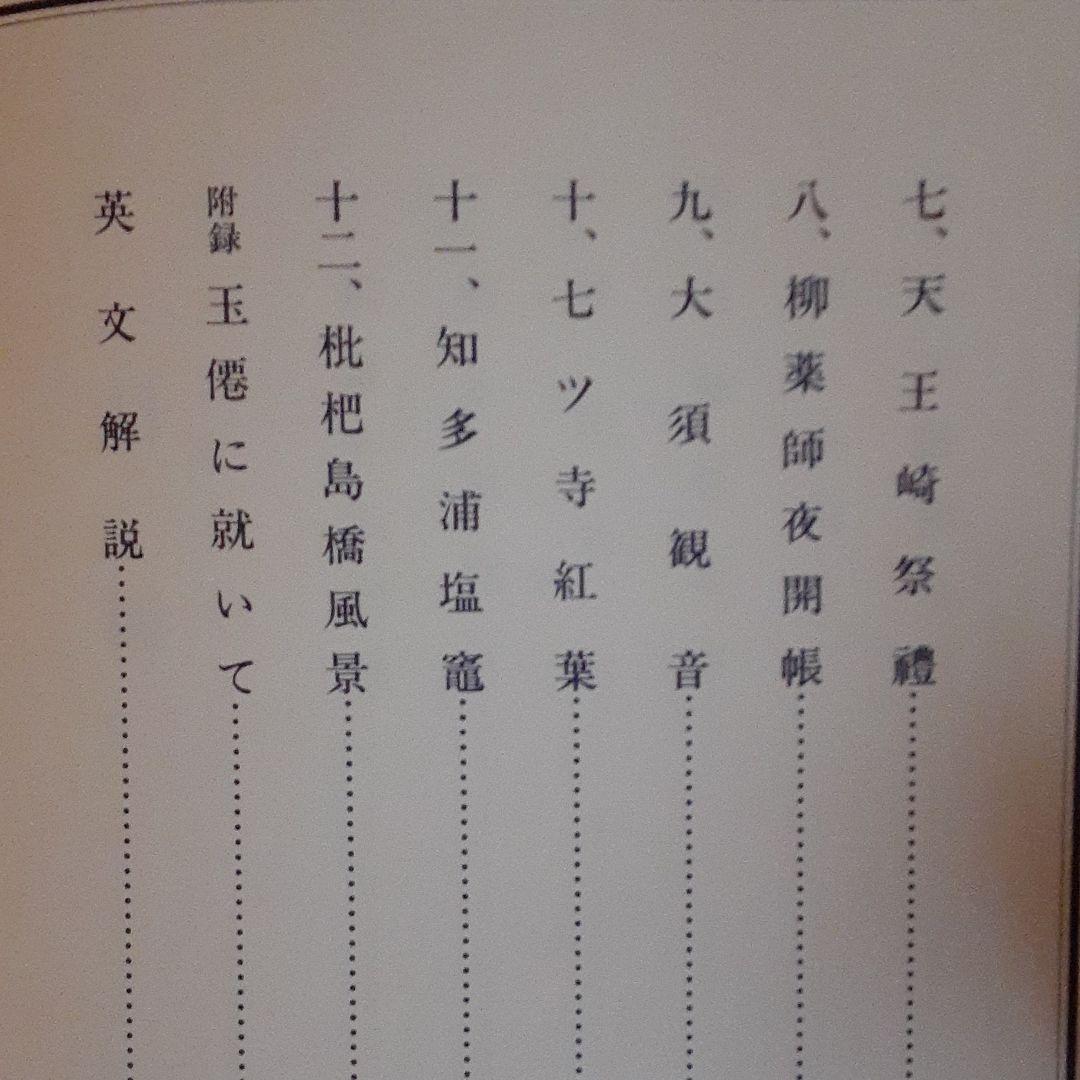 七、天王崎祭禮
八、柳薬師夜開帳
九、大須観音
十、七ツ寺紅葉
十一、知多浦塩竈
十二、枇杷島橋風景
附録 玉僊に就いて
英文解説